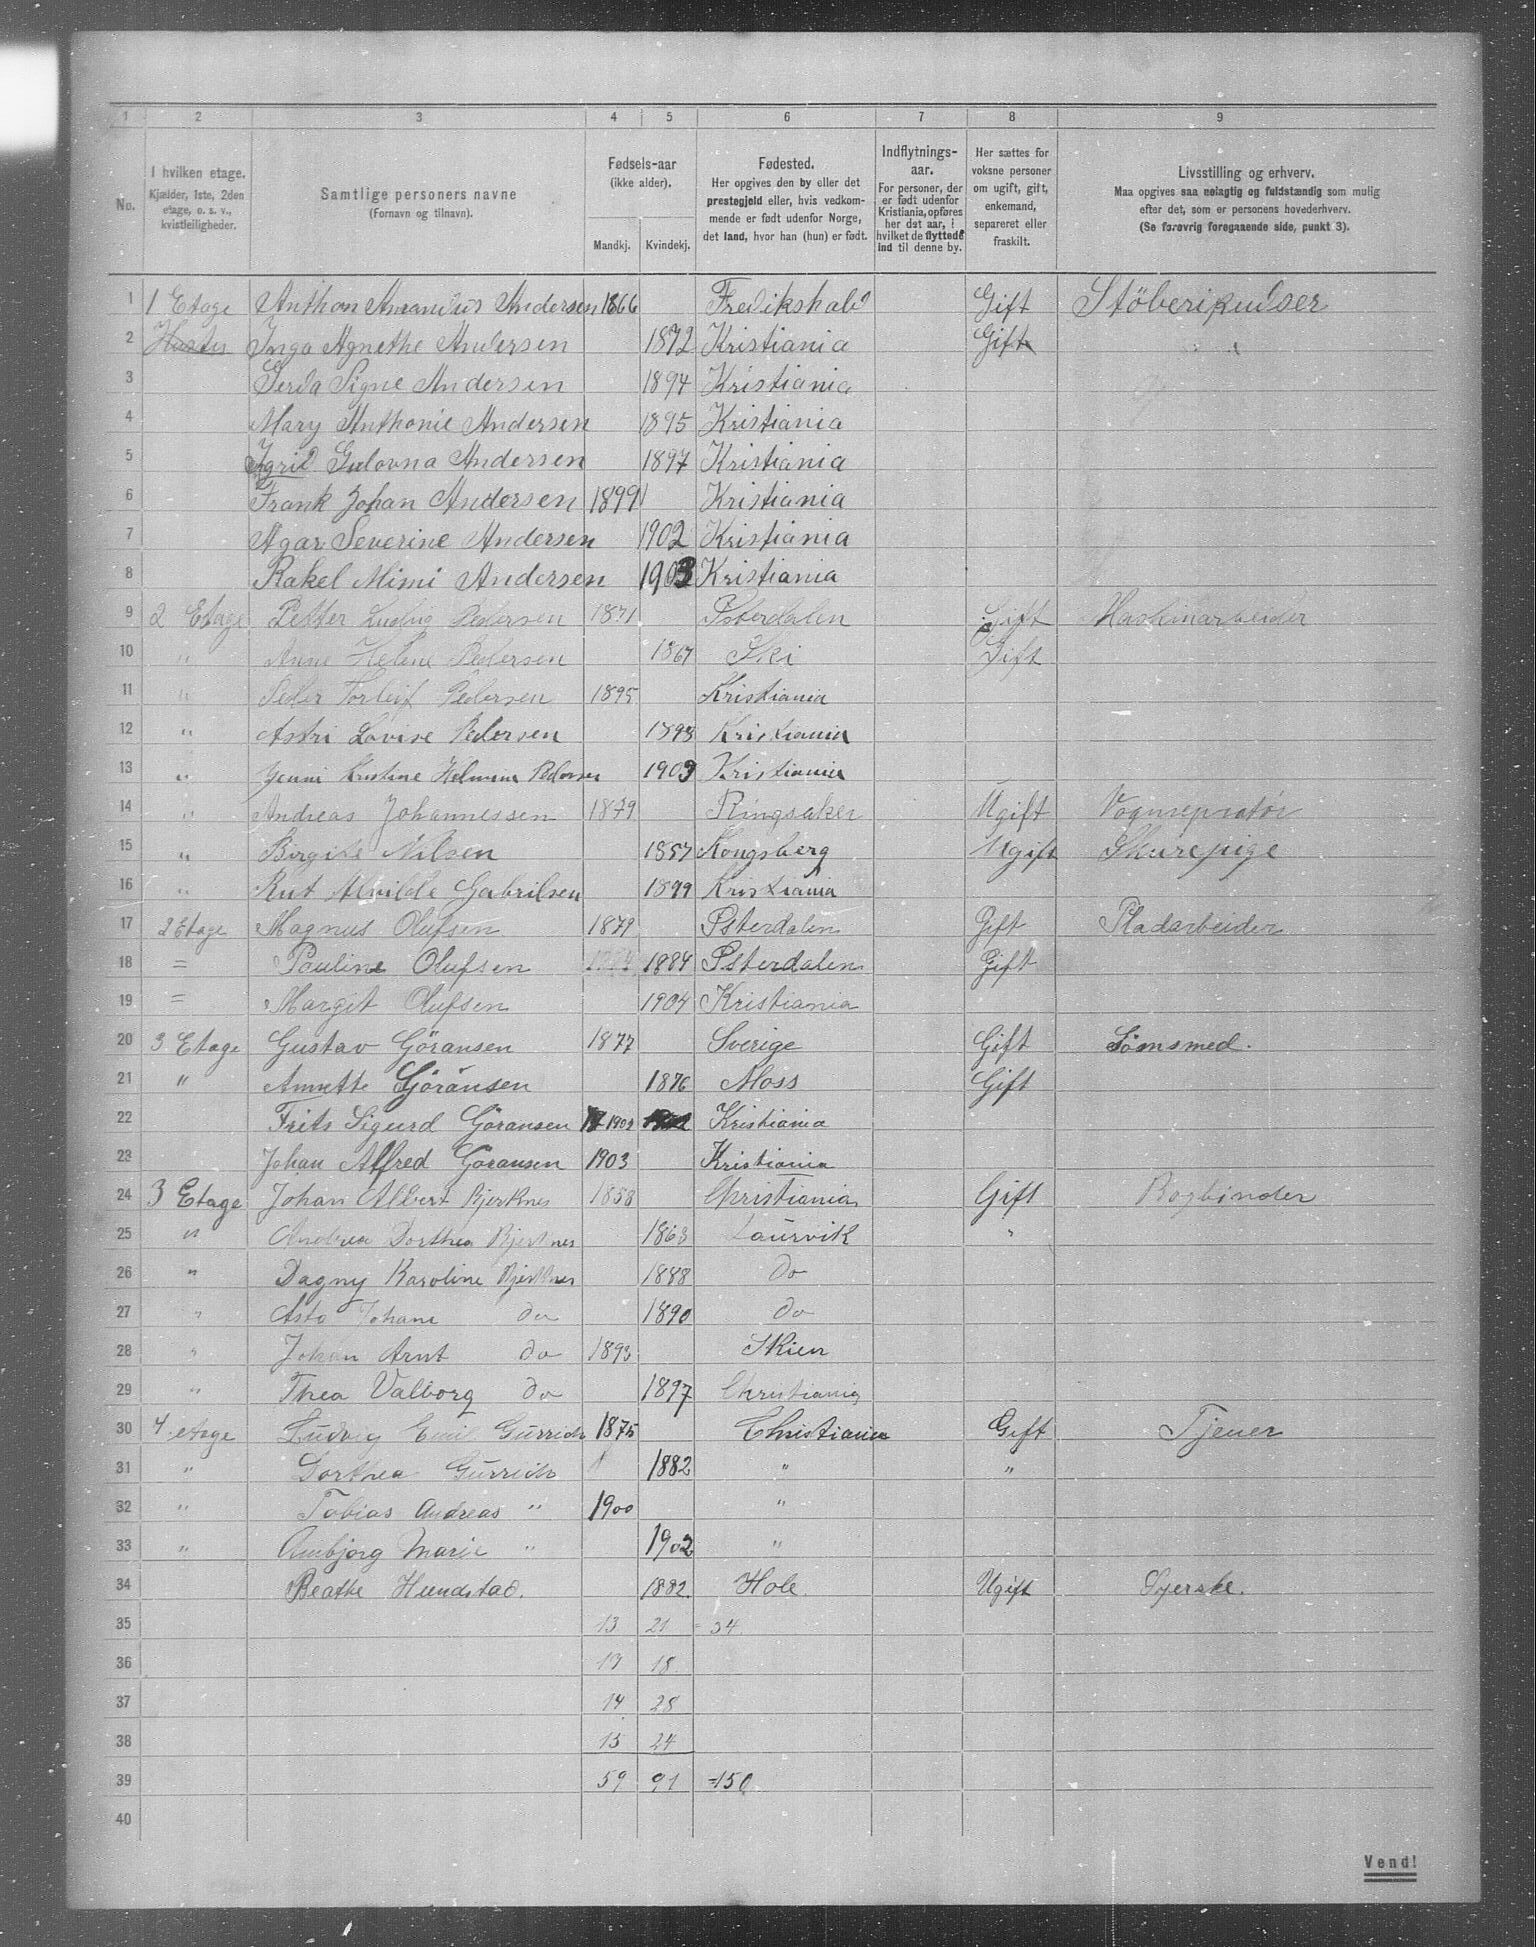 1 2 3 4 5 6 7 8 9
No.
I hvilken etage. Kjælder, 1ste, 2den etage, o. s. v., kvistleiligheder.
Samtlige personers navne (Fornavn og tilnavn).
Fødsels-aar (ikke alder). Mandkj. Kvindekj.
Fødested. Her opgives den by eller det prestegjeld eller, hvis vedkommende er født udenfor Norge, det land, hvor han (hun) er født.
Indflytnings-aar. For personer, der er født udenfor Kristiania, opføres her det aar, i hvilket de flyttede ind til denne by.
Her sættes for voksne personer om ugift, gift, enkemand, separeret eller fraskilt.
Livsstilling og erhverv. Maa opgives saa nøiagtig og fuldstændig som mulig efter det, som er personens hovederhverv. (Se forøvrig foregaaende side, punkt 3).
1 1 Etage Anthon Amandus Andersen 1866 Fredikshald Gift Stöberipudser
2 Inga Agnethe Andersen 1872 Kristiania Gift
3 Gerda Signe Andersen 1894 Kristiania
4 Mary Anthonie Andersen 1895 Kristiania
5 Gulovna Andersen 1897 Kristiania
6 Frank Johan Andersen 1899 Kristiania
7 Agar Severine Andersen 1902 Kristiania
8 Rakel Mimi Andersen 1903 Kristiania
9 2 Etage Petter Ludvig Pedersen 1871 Østerdalen Gift Maskinarbeider
10 " Anne Helene Pedersen 1867 Ski Gift
11 " Peter Torleif Pedersen 1895 Kristiania
12 " Astri Lovise Pedersen 1898 Kristiania
13 " Jenni Kristine Pedersen 1903 Kristiania
14 " Andreas Johannessen 1879 Ringsaker Ugift Vognrepratør
15 " Birgite Nilsen 1857 Kongsberg Ugift Skurepige
16 " Rut Alvilde Gabrilsen 1899 Kristiania
17 2 Etage Magnus Olufsen 1879 Østerdalen Gift Pladarbeider
18 = Pauline Olufsen 1884 Østerdalen Gift
19 = Margit Olufsen 1904 Kristiania
20 3 Etage Gustav Göransen 1877 Sverige Gift Sömsmed.
21 " Annette Göransen 1876 Moss Gift
22 Frits Sigurd Göransen 1902 Kristiania
23 Johan Alfred Göransen 1903 Kristiania
24 3 Etage Johan Albert Bjerknes 1858 Christiania Gift Bogbinder
25 " Andrea Dorthea Bjerknes 1863 Laurvik "
26 " Dagny Karoline Bjerknes 1888 do
27 " Asta Johane do 1890 do
28 " Johan Arnt do 1893 Skien
29 " Thea Valborg do 1897 Christiania
30 4 etage Ludvig Emil Gurrich 1875 Christiania Gift Tjener
31 " Dorthea Gurrich 1882 " "
32 " Tobias Andreas " 1900 "
33 " Annbjørg Marie " 1902 "
34 Beathe Hundstad. 1882. Hole. Ugift Syerske.
35 13 21 = 34
36 17 18
37 14 28
38 15 24
39 59 91 = 150
40
Vend!